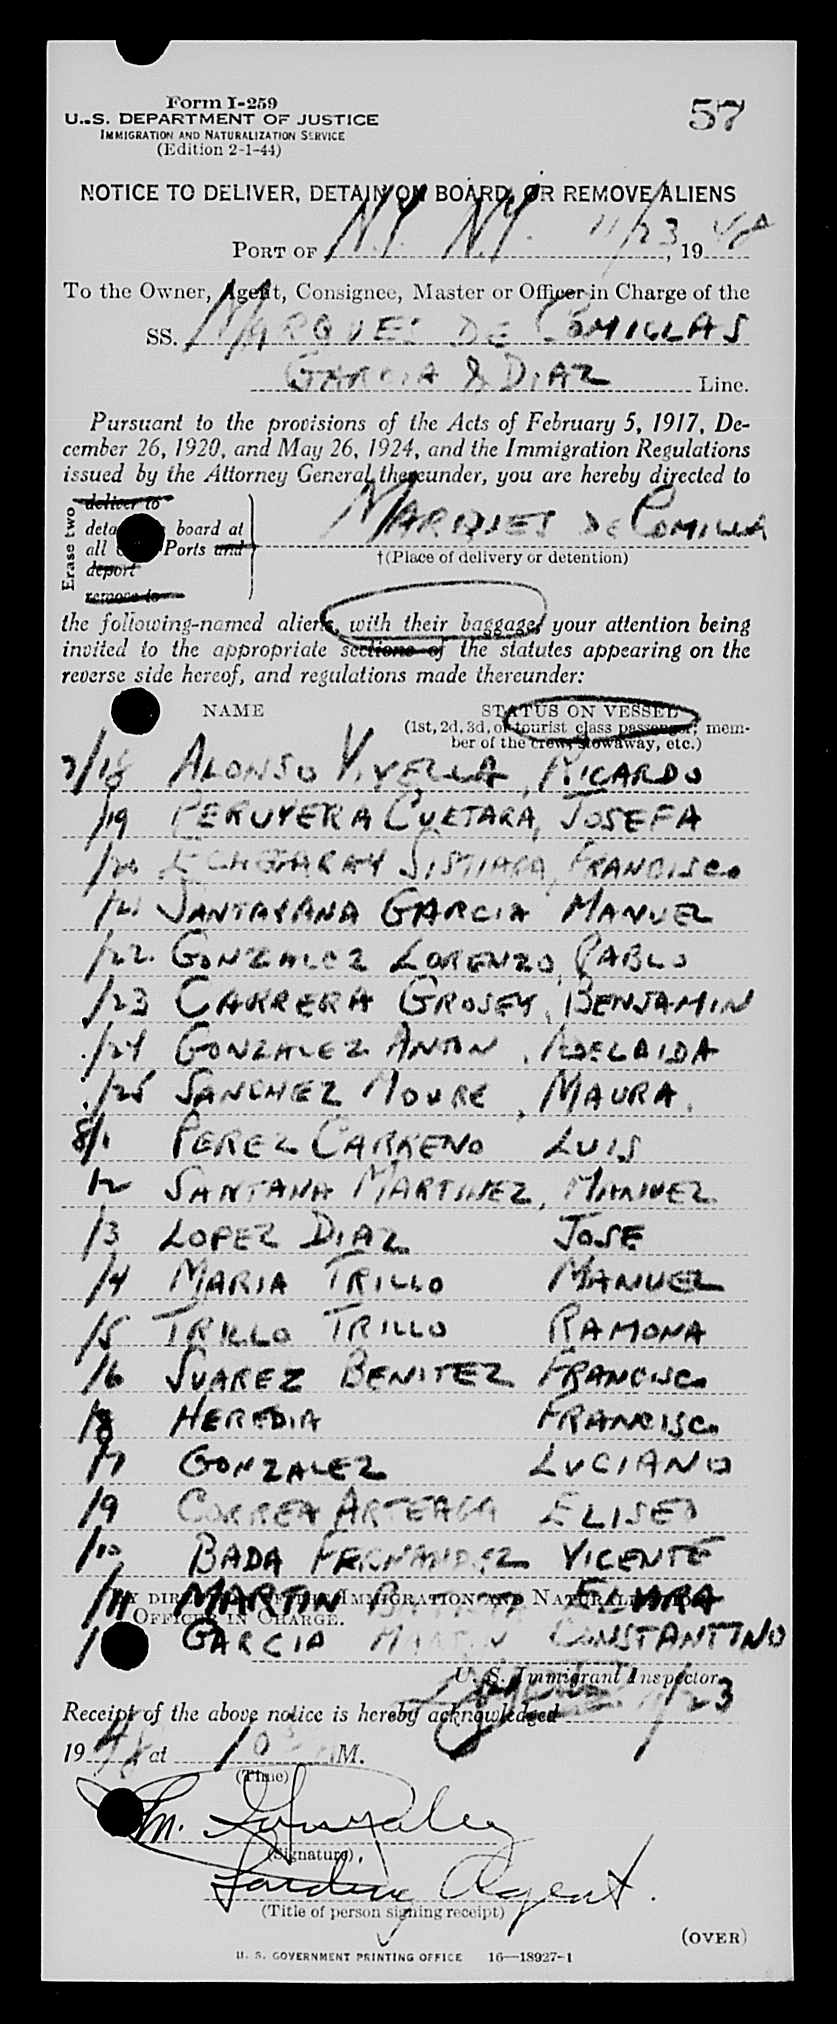 Form I-259
57
U. S. DEPARTMENT OF JUSTICE
IMMIGRATION AND NATURALIZATION SERVICE
(Edition 2-1-44)
NOTICE TO DELIVER, DETAIN ON BOARD, OR REMOVE ALIENS
PORT OF N.Y. N.Y. 11/23, 1948
To the Owner, Agent, Consignee, Master or Officer in Charge of the
SS. MARQUES DE COMILLAS
GARCIA & DIAZ Line.
Pursuant to the provisions of the Acts of February 5, 1917, De-
cember 26, 1920, and May 26, 1924, and the Immigration Regulations
issued by the Attorney General thereunder, you are hereby directed to
Erase two
deliver to
board at
all Ports and
deport
remove to
MARQUES DE COMILLA
†(Place of delivery or detention)
the following-named aliens, with their baggage, your attention being
invited to the appropriate sections of the statutes appearing on the
reverse side hereof, and regulations made thereunder:
NAME STATUS ON VESSEL
(1st, 2d, 3d, or tourist class passenger; mem-
ber of the crew, stowaway, etc.)
7/18 ALONSO VIVELLA, RICARDO
/19 PERUYERA CUETARA, JOSEFA
/20 ECHEGARAY FRANCISCO
/21 SANTAYANA GARCIA MANUEL
/22 GONZALEZ LORENZO, PABLO
/23 CARRERA GROSEY, BENJAMIN
/24 GONZALEZ ANTON, ADELAIDA
/25 SANCHEZ MOURE, MAURA
8/1 PEREZ CARRENO LUIS
/2 SANTANA MARTINEZ, MANUEL
/3 LOPEZ DIAZ JOSE
/4 MARIA TRILLO MANUEL
/5 TRILLO TRILLO RAMONA
/6 SUAREZ BENITEZ FRANCISCO
/8 HEREDIA FRANCISCO
/7 GONZALEZ LUCIANO
/9 CORREA ARTEAGA ELISEO
/10 BADA FERNANDEZ VICENTE
/11 MARTIN ELVIRA
BY DIRECTION OF THE IMMIGRATION AND NATURALIZATION
OFFICER IN CHARGE.
GARCIA MARTIN CONSTANTINO
U. S. Immigrant Inspector.
Receipt of the above notice is hereby acknowledged 11/23
1948 at 10 M.
(Time)
M. Gonzalez
(Signature)
Landing Agent.
(Title of person signing receipt)
(OVER)
U. S. GOVERNMENT PRINTING OFFICE 16—18927-1